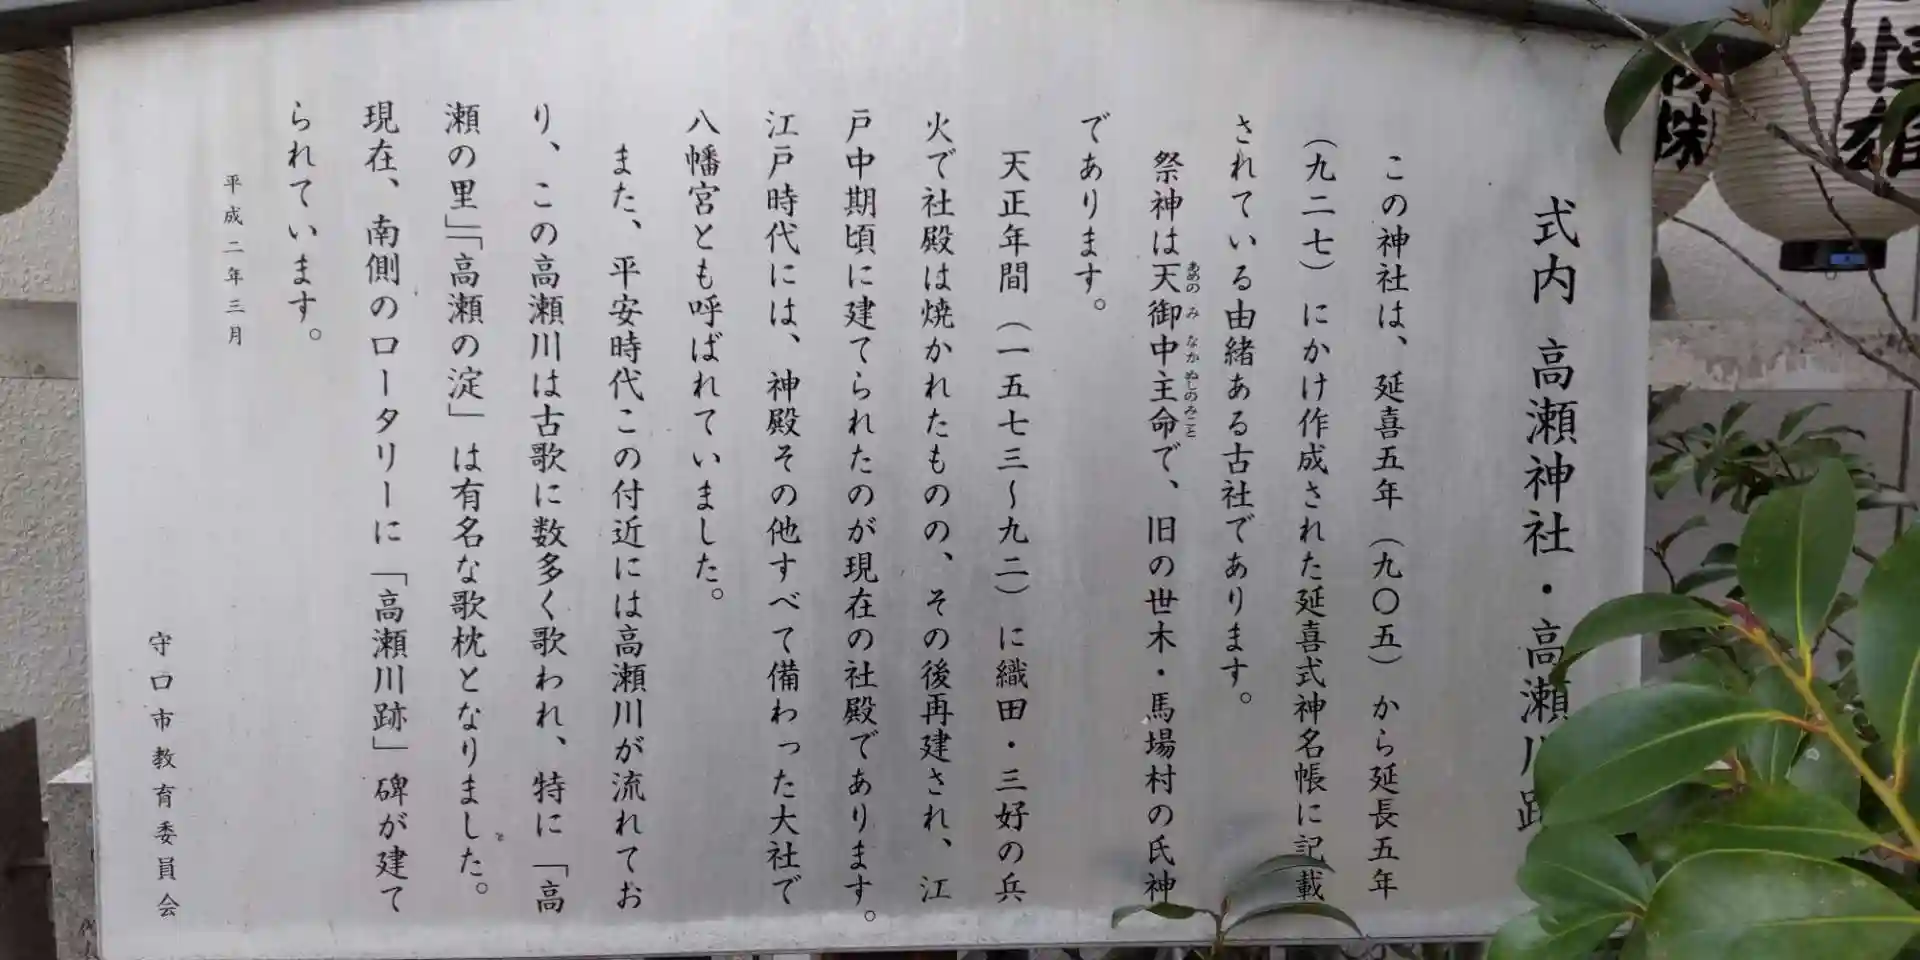 式内 高瀬神社・高瀬川跡
この神社は、延喜五年（九〇五）から延長五年
（九二七）にかけ作成された延喜式神名帳に記載
されている由緒ある古社であります。
祭神は天御中主命で、旧の世木・馬場村の氏神
あめの み なか ぬしのみこと
であります。
天正年間（一五七三〜九二）に織田・三好の兵
火で社殿は焼かれたものの、その後再建され、江
戸中期頃に建てられたのが現在の社殿であります。
江戸時代には、神殿その他すべて備わった大社で
八幡宮とも呼ばれていました。
また、平安時代この付近には高瀬川が流れてお
り、この高瀬川は古歌に数多く歌われ、特に「高
瀬の里」「高瀬の淀」は有名な歌枕となりました。
現在、南側のロータリーに「高瀬川跡」碑が建て
られています。
平成二年三月
守口市教育委員会